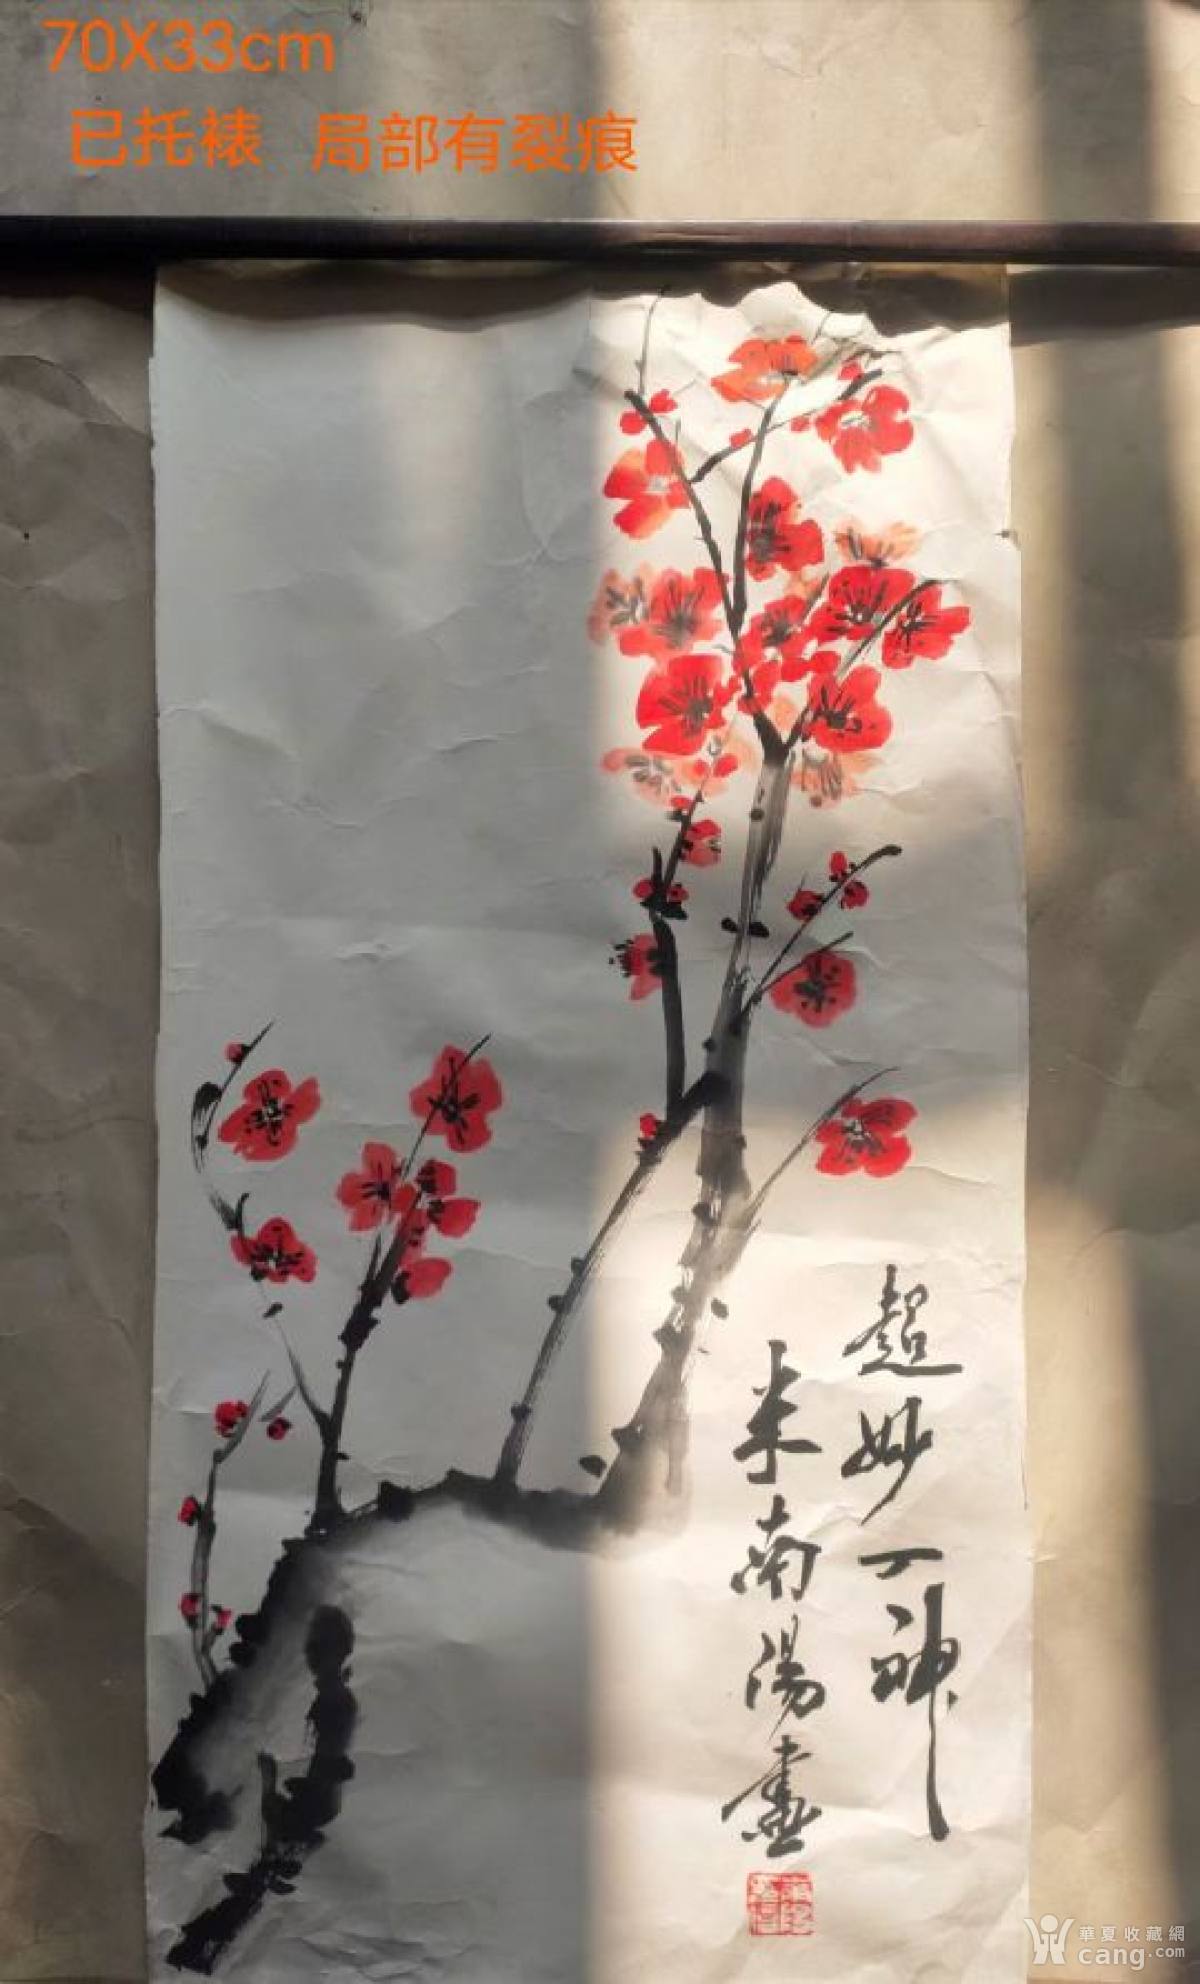 70X33cm
已托裱 局部有裂痕
超妙丁神
米南阳画
華夏收藏網
cang.com